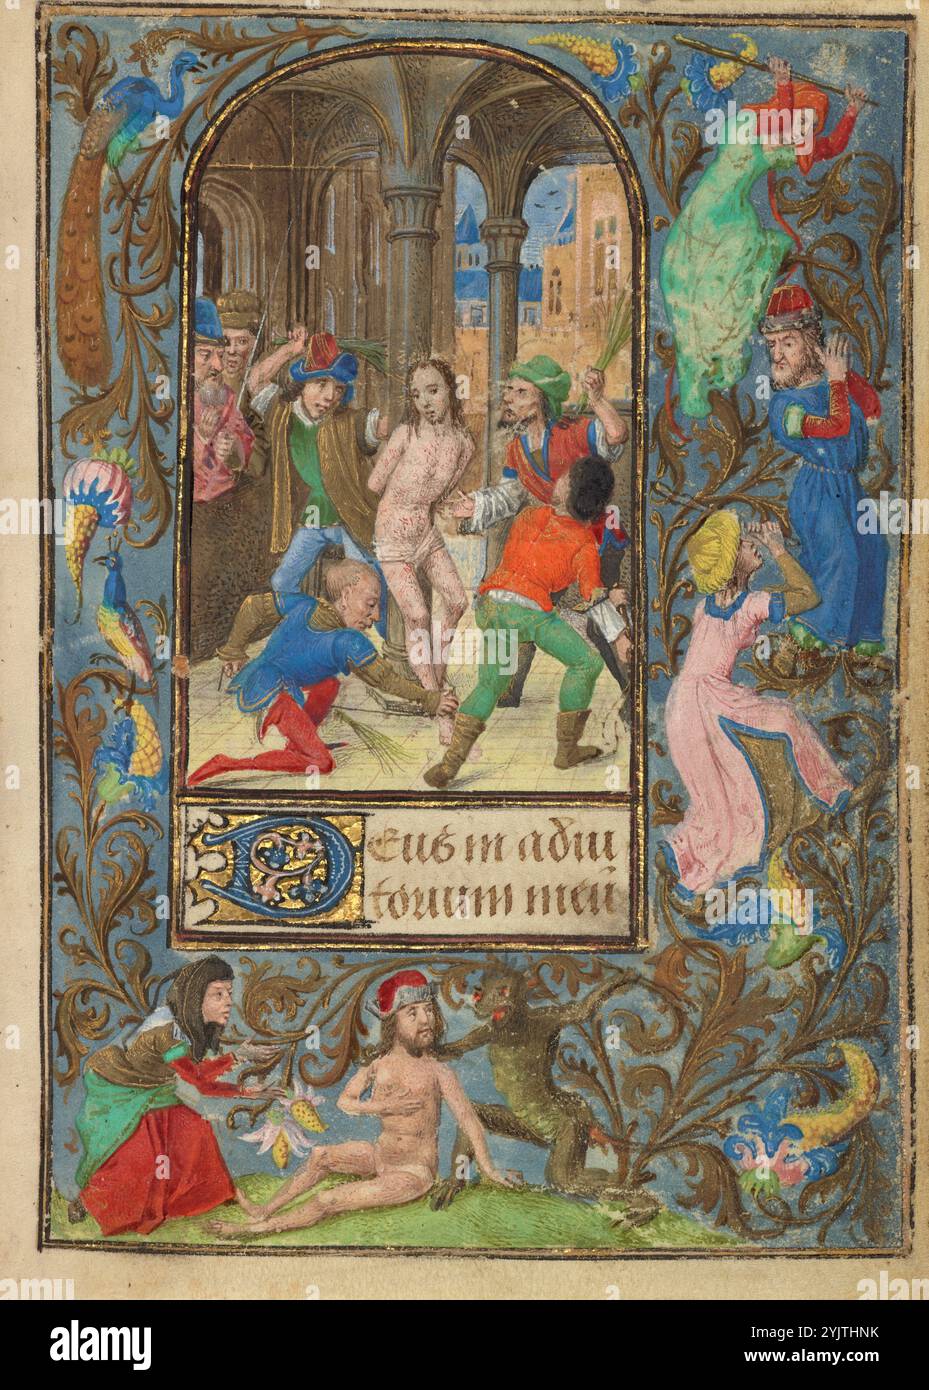 Deus in adiu
torium meū
alamy
Image ID: 2YJTHNK
www.alamy.com